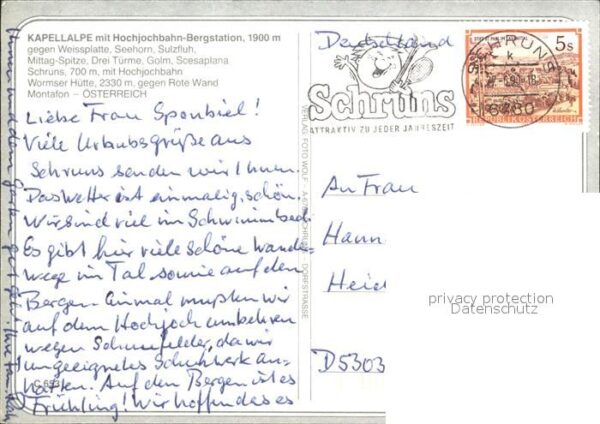 KAPELLALPE mit Hochjochbahn-Bergstation, 1900 m
gegen Weissplatte, Seehorn, Sulzfluh,
Mittag-Spitze, Drei Türme, Golm, Scesaplana
Schruns, 700 m, mit Hochjochbahn
Wormser Hütte, 2330 m, gegen Rote Wand
Montafon – ÖSTERREICH
Liebe Frau Sponbiel!
Viele Urlaubsgrüße aus
Schruns senden wir Ihnen.
Das Wetter ist einmalig schön.
Wir sind viel im Schwimmbad
Es gibt hier viele schöne Wander-
wege im Tal sowie auf den
Bergen. Einmal mußten wir
auf dem Hochjoch umkehren
wegen Schneefelder, da wir
ungeeignetes Schuhwerk an-
hatten. Auf den Bergen ist es
Frühling! Wir hoffen das es
dem Garten gut geht. Ihre Fam.
C 653
VERLAG FOTO WOLF
SCHRUNS - DORFSTRASSE
Deutschland
Schruns
ATTRAKTIV ZU JEDER JAHRESZEIT
SCHRUNS
k
6780
5 S
REPUBLIK ÖSTERREICH
An Frau
Hann
Heid
D5303
privacy protection
Datenschutz